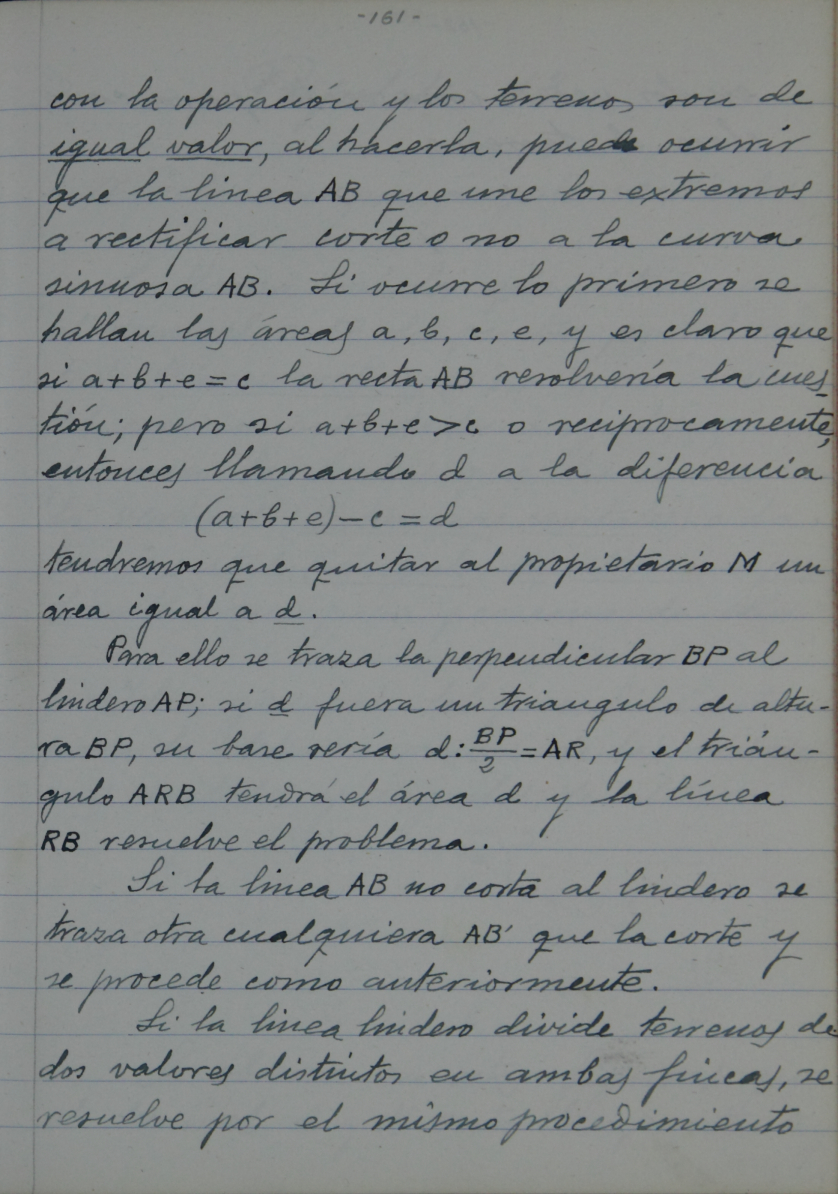 -161-
con la operación y los terrenos son de
igual valor, al hacerla, puede ocurrir
que la linea AB que une los extremos
a rectificar corte o no a la curva
sinuosa AB. Si ocurre lo primero se
hallan las áreas a, b, c, e, y es claro que
si a+b+e=c la recta AB resolvería la cues-
tión; pero si a+b+e>c o reciprocamente,
entonces llamando d a la diferencia
(a+b+e)-c=d
tendremos que quitar al propietario M un
área igual a d.
Para ello se traza la perpendicular BP al
lindero AP; si d fuera un triangulo de altu-
ra BP, su base sería d:BP/2=AR, y el trián-
gulo ARB tendrá el área d y la línea
RB resuelve el problema.
Si la linea AB no corta al lindero se
traza otra cualquiera AB' que la corte y
se procede como anteriormente.
Si la linea lindero divide terrenos de
dos valores distintos en ambas fincas, se
resuelve por el mismo procedimiento